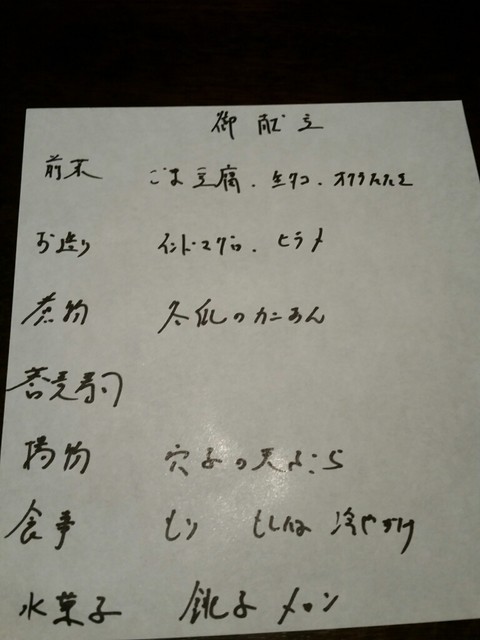 御献立
前菜 ごま豆腐、生タコ、オクラたたき
お造り インドマグロ、ヒラメ
煮物 冬瓜のカニあん
蕎麦寿司
揚物 穴子の天ぷら
食事 もり もしくは 冷やかけ
水菓子 銚子メロン